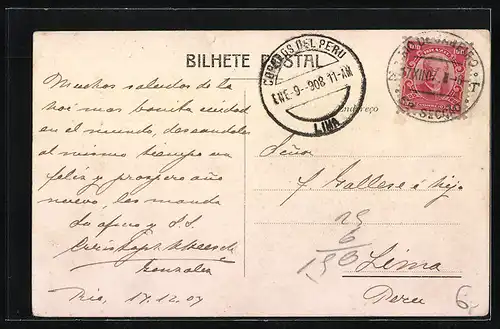 BILHETE POSTAL
CORREOS DEL PERU
ENE-9-908 11-AM
LIMA
BRAZIL
Endereço
Muchos saludos de la
mas bonita ciudad
en el mundo, deseandoles
al mismo tiempo un
feliz y prospero año
nuevo, les manda
Su afmo y S.S.
Gonzales
Rio, 17.12.07
Señor
F. Gallese é hijo
Lima
Peru
6